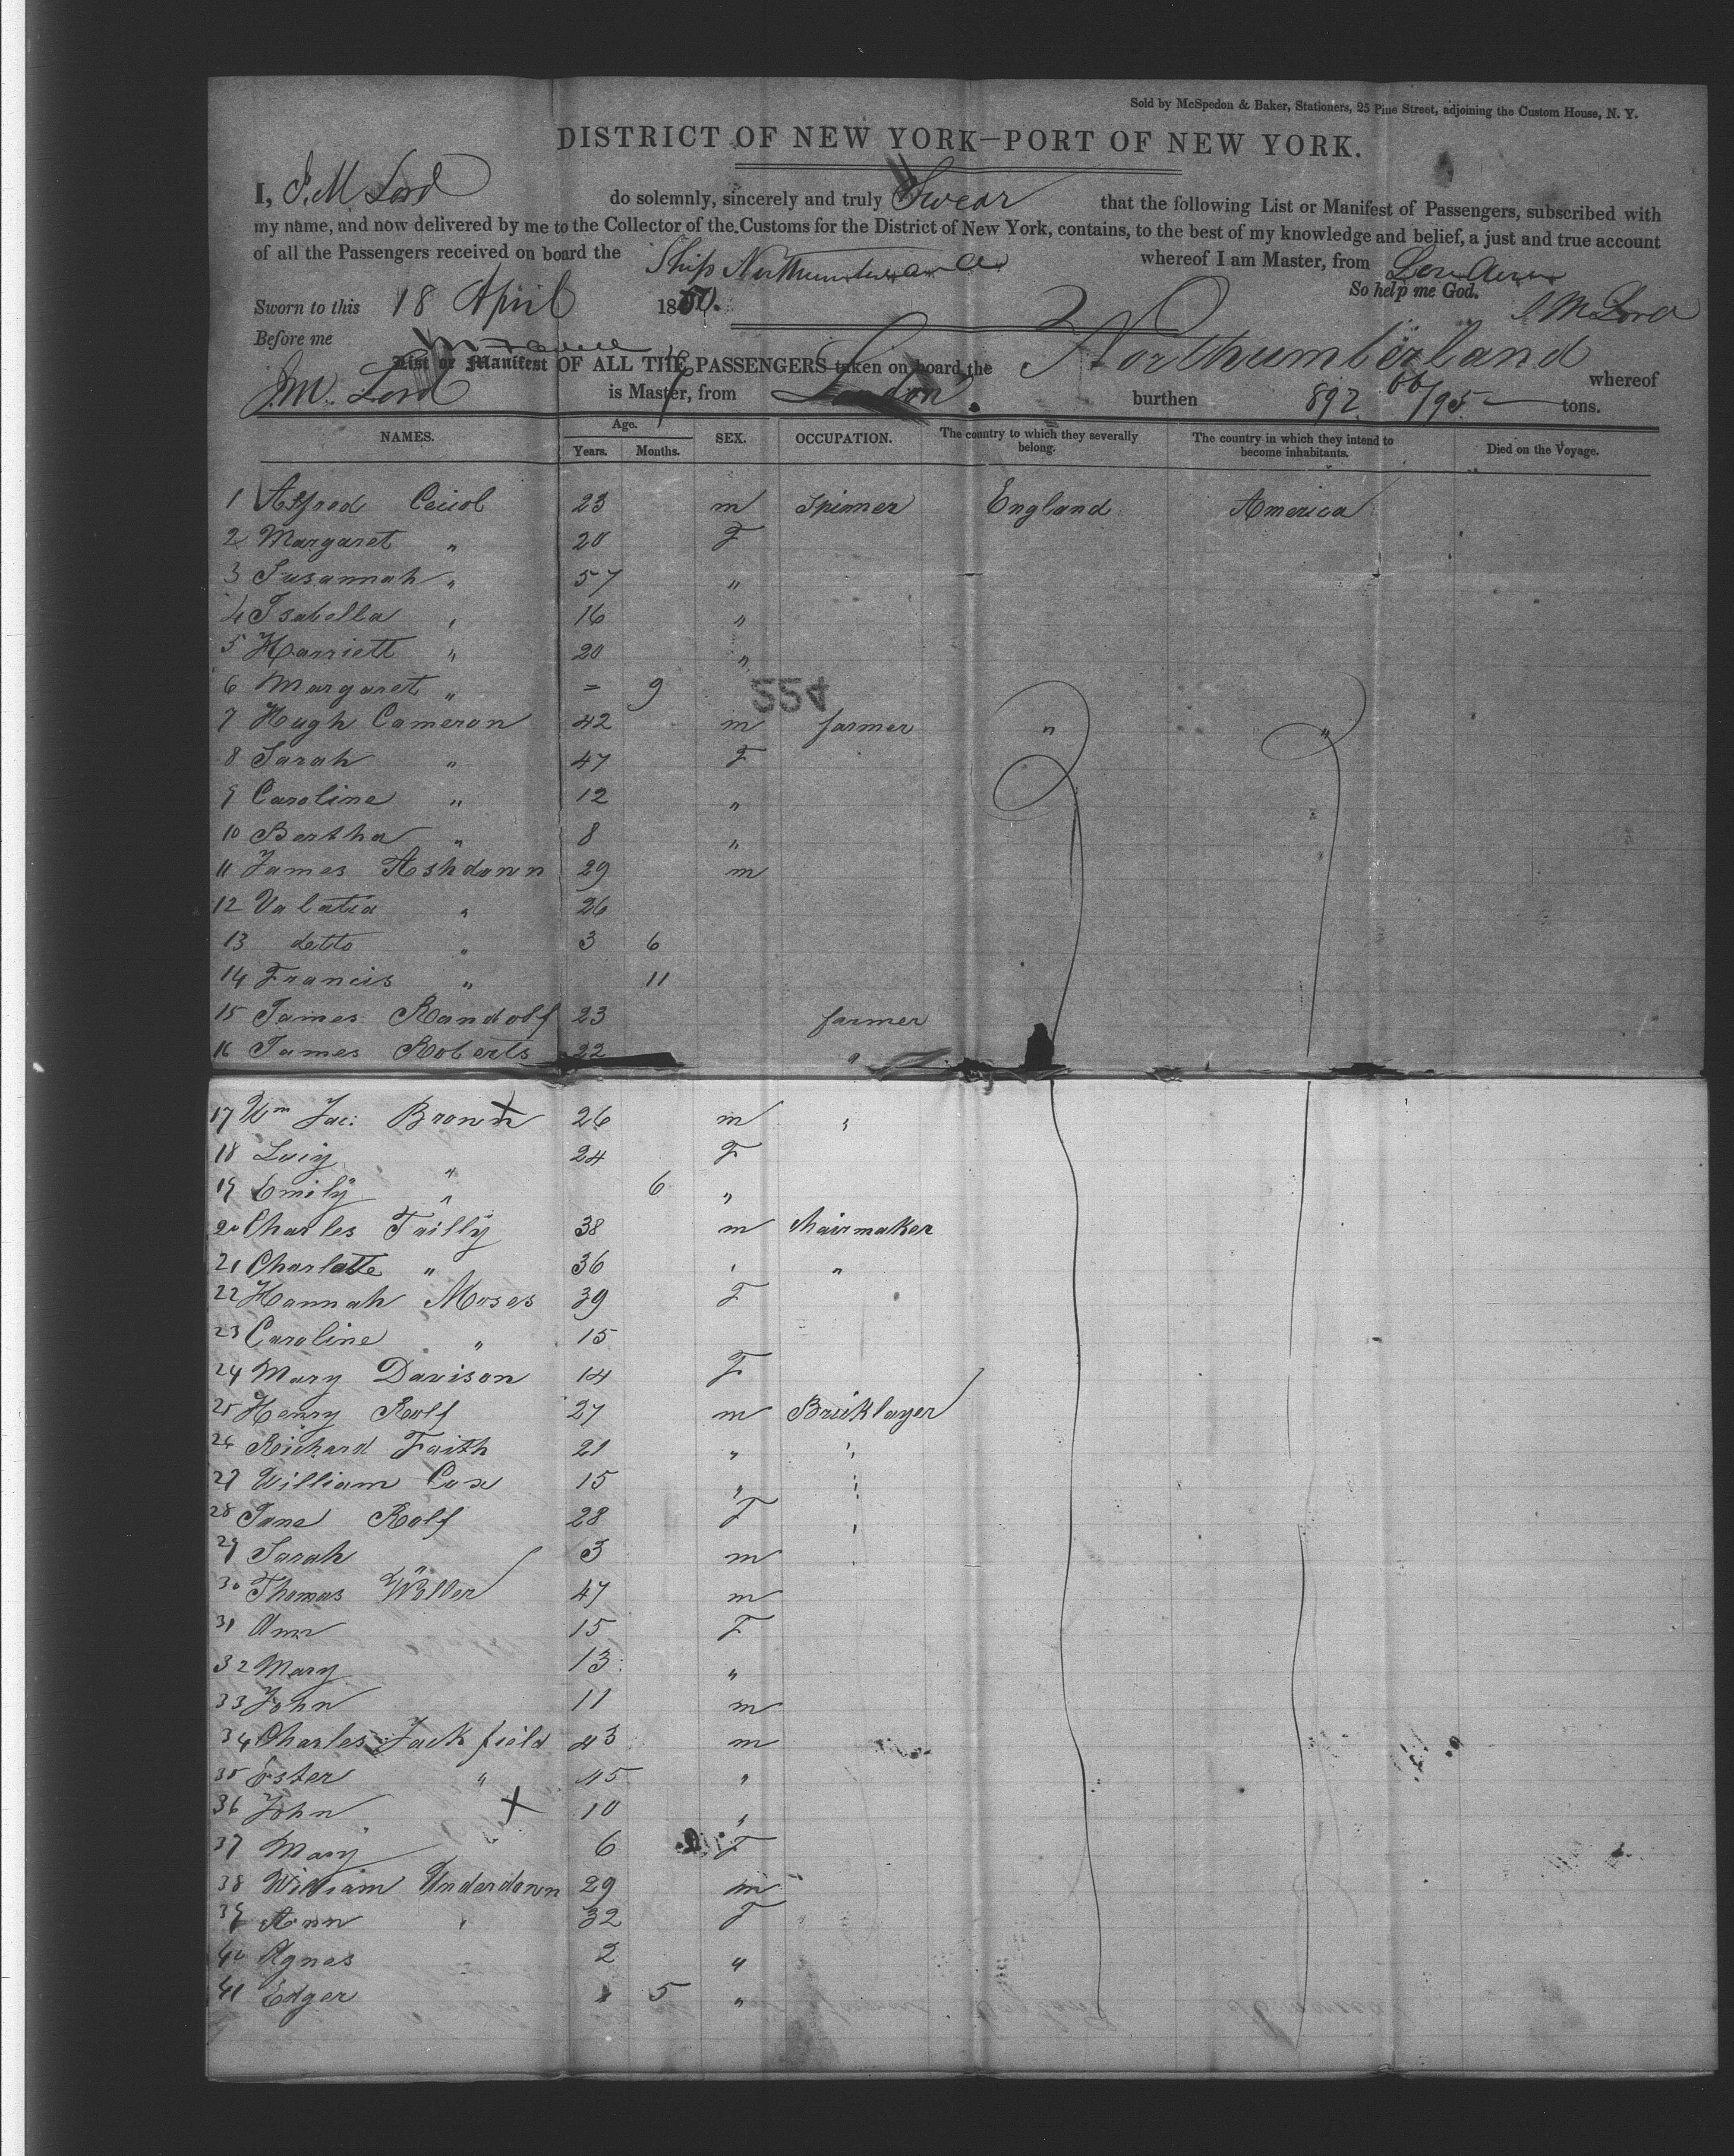 Sold by McSpedon & Baker, Stationers, 25 Pine Street, adjoining the Custom House, N. Y.
DISTRICT OF NEW YORK—PORT OF NEW YORK.
I, J. M Lord do solemnly, sincerely and truly Swear that the following List or Manifest of Passengers, subscribed with
my name, and now delivered by me to the Collector of the Customs for the District of New York, contains, to the best of my knowledge and belief, a just and true account
of all the Passengers received on board the Ship Northumberland whereof I am Master, from London
So help me God.
Sworn to this 18 April 1850. J M Lord
Before me
List or Manifest OF ALL THE PASSENGERS taken on board the Northumberland whereof
J M. Lord is Master, from London. burthen 892 66/95 tons.
NAMES. Age. Years. Months. SEX. OCCUPATION. The country to which they severally belong. The country in which they intend to become inhabitants. Died on the Voyage.
1 Alfred 23 m Spinner England America
2 Margaret " 20 F
3 Susannah " 57 "
4 Isabella " 16 "
5 Harriett " 20 "
6 Margaret " = 9
224
7 Hugh Cameron 42 m farmer " "
8 Sarah " 47 F
9 Caroline " 12 "
10 Bertha " 8 "
11 James Ashdown 29 m
12 Valatia " 26
13 detto " 3 6
14 Francis " 11
15 James Randolf 23 farmer
16 James Roberts 22 "
17 Wm Jac: Brown X 26 m "
18 Luiy " 24 F
19 Emily " 6 "
20 Charles Tailly 38 m Chairmaker
21 Charlatte " 36 " "
22 Hannah Moses 39 F
23 Caroline " 15
24 Mary Davison 14 F
25 Henry Rolf 27 m Bricklayer
26 Richard Faith 21 " "
27 William Cox 15 " "
28 Jane Rolf 28 F "
29 Sarah " 3 m "
30 Thomas Woller 47 m
31 Ann 15 F
32 Mary 13 "
33 John 11 m
34 Charles Jackfield 43 m
35 Ester " 45 "
36 John X 10 "
37 Mary " 6 F
38 William Underdown 29 m
39 Ann " 32 F
40 Agnes 2 "
41 Edger 5 "